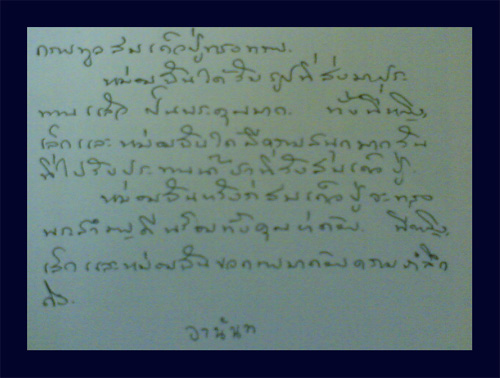 กราบทูล สมเด็จปู่ทรงทราบ
หม่อมฉันได้รับรูปที่ส่งมาประ
ทานแล้ว เป็นพระคุณมาก. ทั้งพี่หญิง,
เล็กและหม่อมฉันได้มีความสนุกมากใน
ที่ไปรับประทานน้ำชาที่วังสมเด็จปู่.
หม่อมฉันหวังว่าสมเด็จปู่จะทรง
พระสำราญดีพร้อมทั้งคุณ พี่หญิง,
เล็กและหม่อมฉันขอกราบมาด้วยความรำลึก
ถึง.
อานันท